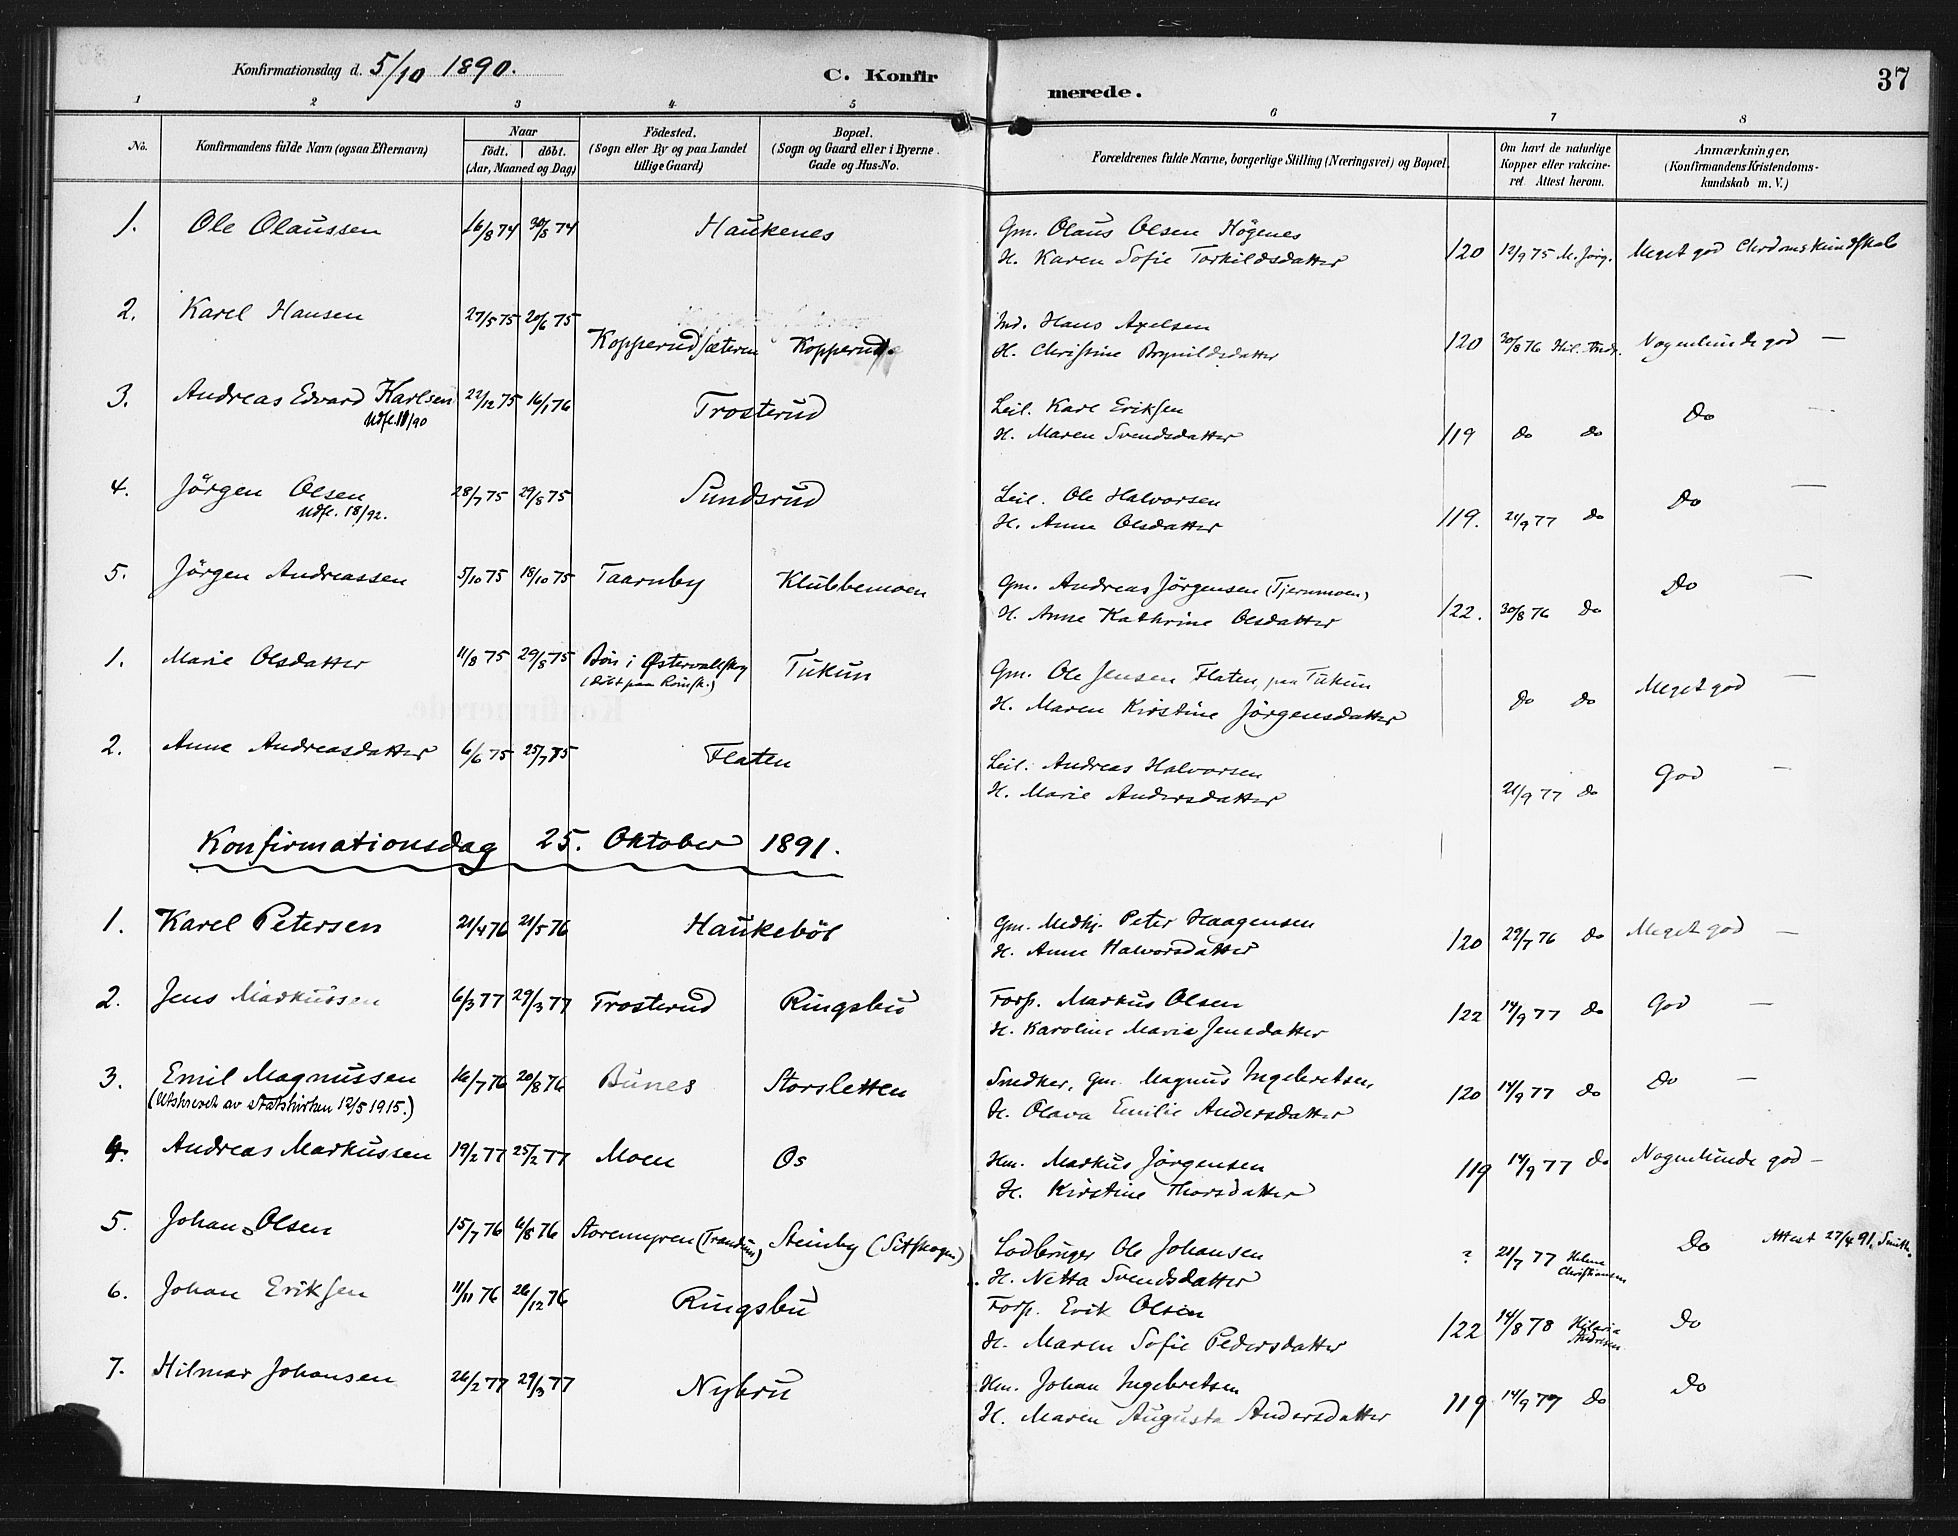 Konfirmationsdag d. 5/10 1890.
C. Konfirmerede.
37
1 2 3 4 5 6 7 8
No. | Konfirmandens fulde Navn (ogsaa Efternavn) | Naar födt. döbt. (Aar, Maaned og Dag) | Födested. (Sogn eller By og paa Landet tillige Gaard) | Bopæl. (Sogn og Gaard eller i Byerne Gade og Hus-No. | Forældrenes fulde Navne, borgerlige Stilling (Næringsvei) og Bopæl. | Om havt de naturlige Kopper eller vakcineret. Attest herom. | Anmærkninger. (Konfirmandens Kristendomskundskab m. V.)
1. Ole Olaussen 16/8 74 30/8 74 Haukenes Gm. Olaus Olsen Högenes
H. Karen Sofie Torkildsdatter 120 12/9 75 M. Jörg. Meget god Chrdomskundskab
2. Karel Hansen 27/5 75 20/6 75 Kopperudsæteren Kopperud Ind. Hans Axelsen
H. Christine Brynildsdatter 120 30/8 76 Hil. Andr. Nogenlunde god —
3. Andreas Edvard Karlsen 22/12 75 16/1 76 Trosterud Leil. Karl Eriksen
Udfl. 11/90 H. Maren Svendsdatter 119 do do Do
4. Jörgen Olsen 28/7 75 29/8 75 Sundsrud Leil. Ole Halvorsen
Udfl. 18/92. H. Anne Olsdatter 119. 21/9 77 do Do —
5. Jörgen Andreassen 5/10 75 18/10 75 Taarnby Klubbemoen Gm. Andreas Jörgensen (Tjernmoen)
H. Anne Kathrine Olsdatter 122. 30/8 76 do Do —
1. Marie Olsdatter 11/8 75 29/8 75 Bön i Østervallskog Tukun Gm. Ole Jensen Flaten, paa Tukun
(döbt paa Römsk.) H. Maren Kirstine Jörgensdatter do do Meget god —
2. Anne Andreasdatter 6/6 75 25/7 75 Flaten Leil. Andreas Halvorsen
H. Marie Andersdatter 21/9 77 do God —
Konfirmationsdag 25. Oktober 1891.
1. Karel Petersen 21/4 76 21/5 76 Haukeböl Gm. Medhj. Peter Haagensen
H. Anne Halvorsdatter 120 29/7 76 do Meget god —
2. Jens Markussen 6/3 77 29/3 77 Trosterud Ringsbu Forp. Markus Olsen
H. Karoline Maria Jensdatter 122 14/9 77 do God —
3. Emil Magnussen 16/7 76 20/8 76 Bunes Storsletten Snedker, Gm. Magnus Ingebretsen,
(Utskrevet av statskirken 12/5 1915.) H. Olava Emilie Andersdatter 120 14/9 77 do Do —
4. Andreas Markussen 19/2 77 25/2 77 Moen Os Hm. Markus Jörgensen
H. Kirstine Thorsdatter 119 14/9 77 do Nogenlunde god —
5. Johan Olsen 15/7 76 6/8 76 Storemyren (Trandum) Steinby (Sitskogen) Lodbruger Ole Johansen
H. Netta Svendsdatter ? 21/7 77 Helene Christiansen Do Attest 27/4 91, Smith.
6. Johan Eriksen 11/11 76 26/12 76 Ringsbu Forp. Erik Olsen
H. Maren Sofie Pedersdatter 122 14/8 78 Hilaria Andresen Do
7. Hilmar Johansen 26/2 77 29/3 77 Nybru Hm. Johan Ingebretsen
H. Maren Augusta Andersdatter 119 14/9 77 do Do